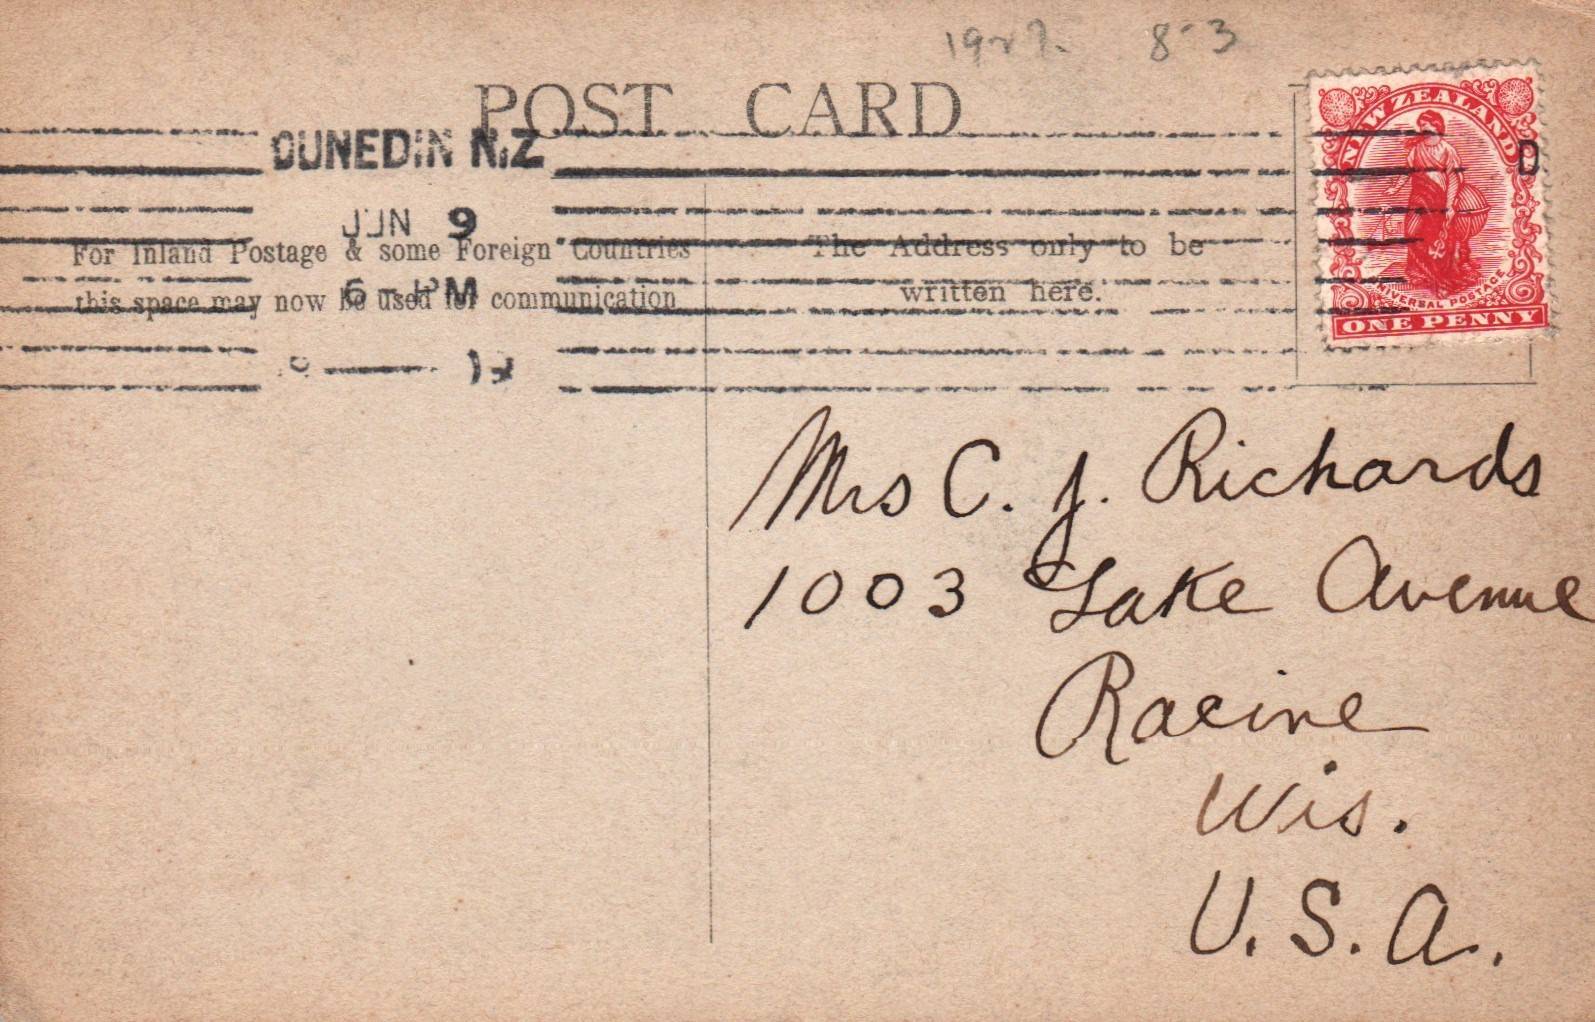 1927. 8-3
POST CARD
DUNEDIN N.Z
JUN 9
6 - PM
NEW ZEALAND
UNIVERSAL POSTAGE
ONE PENNY
D
For Inland Postage & some Foreign Countries
this space may now be used for communication
The Address only to be
written here.
Mrs C. J. Richards
1003 Lake Avenue
Racine
Wis.
U.S.A.